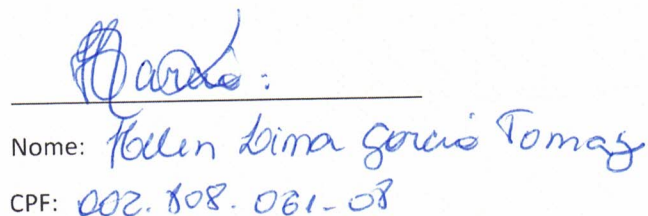 HGarcia:
Nome: Helen Lima Garcia Tomaz
CPF: 002.808.061-08